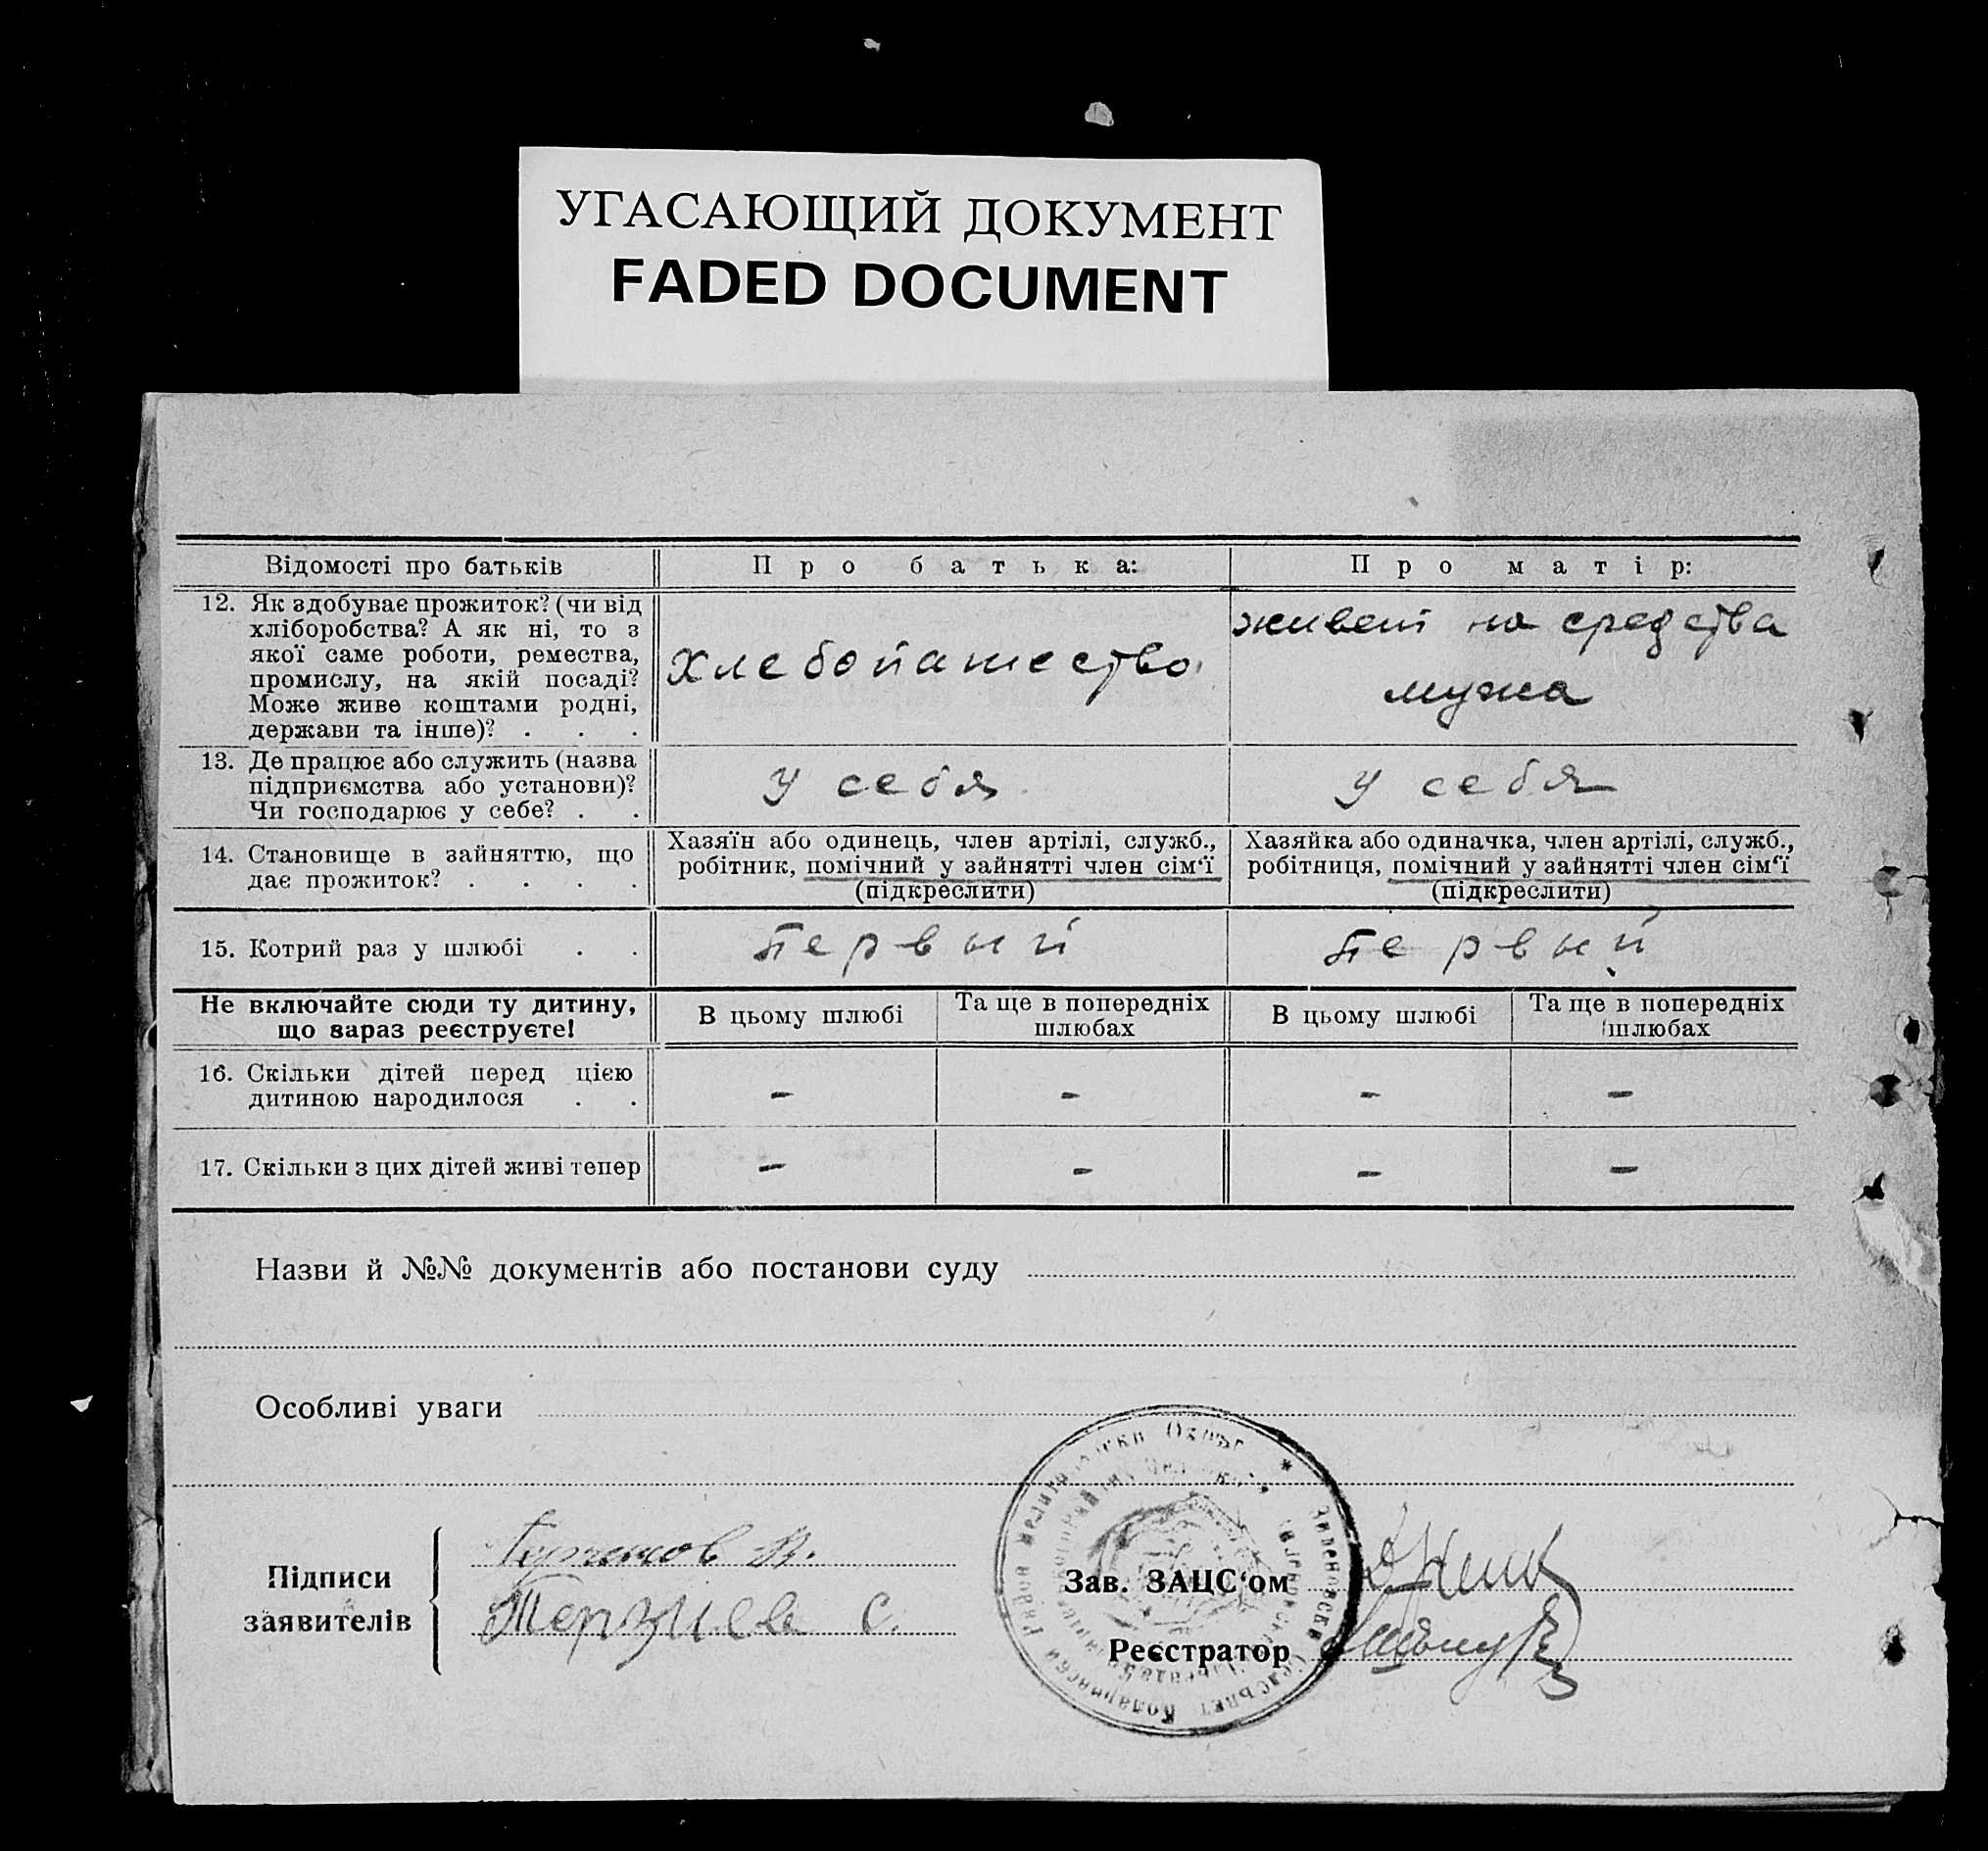 УГАСАЮЩИЙ ДОКУМЕНТ
FADED DOCUMENT
Відомості про батьків
Про батька:
Про матір:
12. Як здобуває прожиток? (чи від
хліборобства? А як ні, то з
якої саме роботи, ремества,
промислу, на якій посаді?
Може живе коштами родні,
держави та інше)? . . .
Хлебопашество
живет на средства
мужа
13. Де працює або служить (назва
підприємства або установи)?
Чи господарює у себе? . .
у себя
у себя
14. Становище в зайняттю, що
дає прожиток? . . . .
Хазяїн або одинець, член артілі, служб.,
робітник, помічний у зайнятті член сім‘ї
(підкреслити)
Хазяйка або одиначка, член артілі, служб.,
робітниця, помічний у зайнятті член сім‘ї
(підкреслити)
15. Котрий раз у шлюбі . .
Первый
Первый
Не включайте сюди ту дитину,
що зараз реєструєте!
В цьому шлюбі
Та ще в попередніх
шлюбах
В цьому шлюбі
Та ще в попередніх
шлюбах
16. Скільки дітей перед цією
дитиною народилося . .
– – – –
17. Скільки з цих дітей живі тепер
– – – –
Назви й №№ документів або постанови суду
Особливі уваги
Підписи
заявителів
Терзиева С.
Зав. ЗАЦС‘ом
Реєстратор